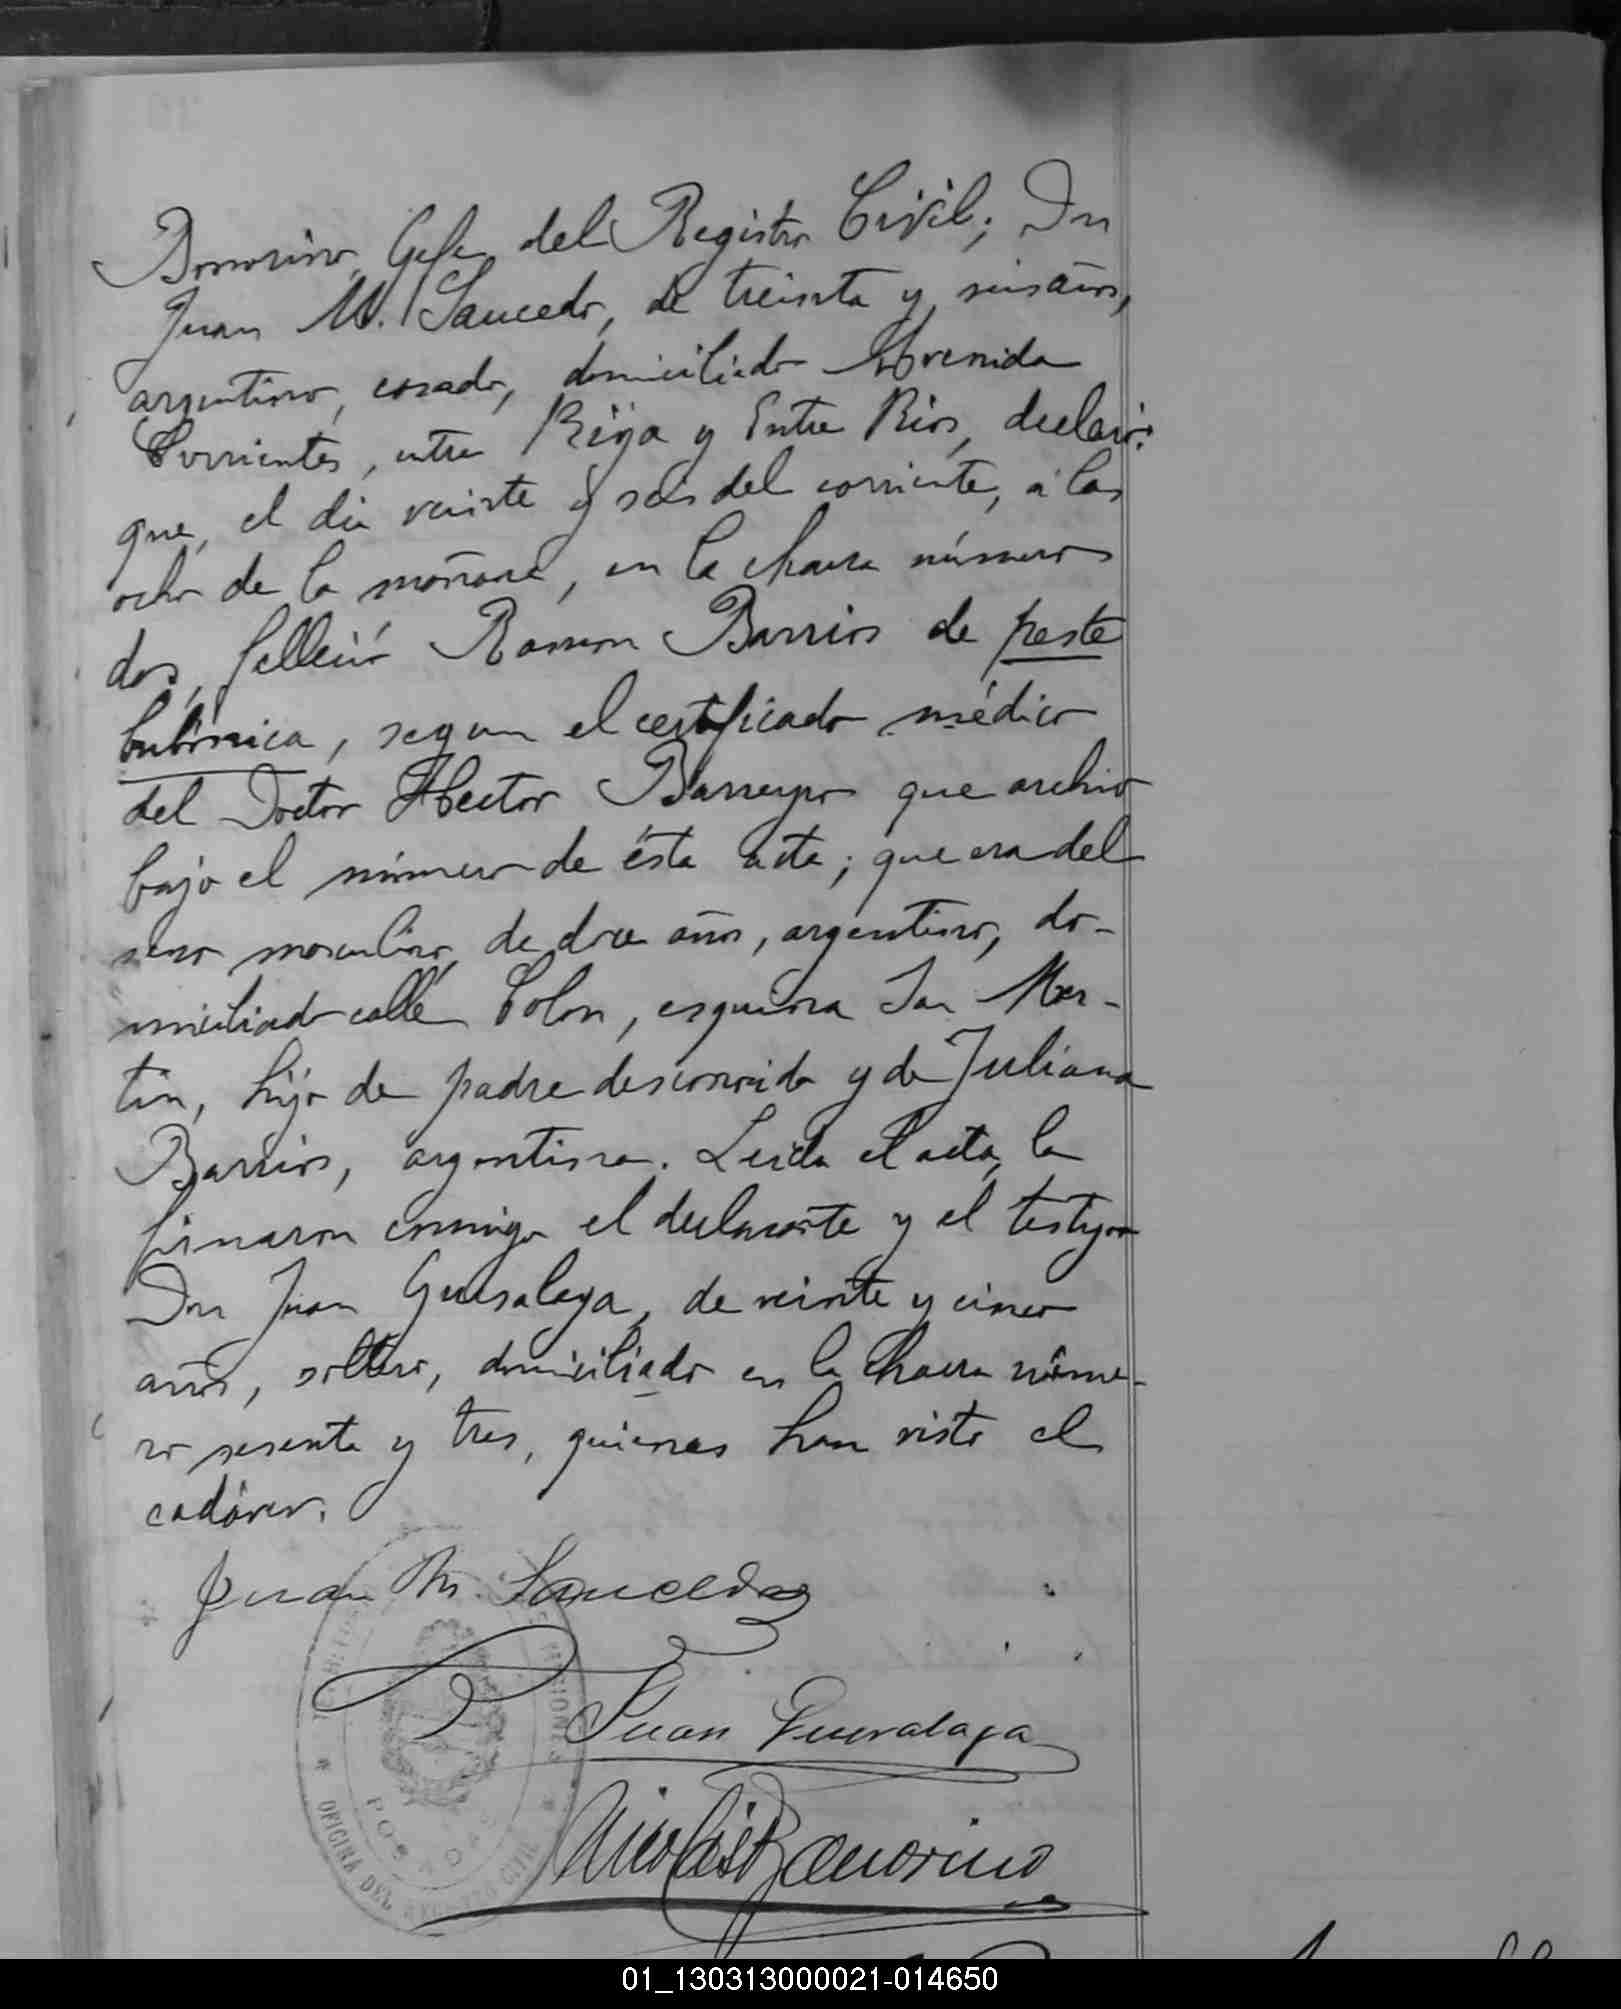 Bonorino, Gefe del Registro Civil; Dn
Juan M. Saucedo, de treinta y seis años,
argentino, casado, domiciliado Avenida
Corrientes, entre Rioja y Entre Rios, declaró:
que, el dia veinte y seis del corriente, á las
ocho de la mañana, en la chacra número
dos, falleció Ramon Barrios de peste
bubónica, segun el certificado médico
del Doctor Hector Barreyro que archivo
bajo el número de ésta acta; que era del
sexo masculino, de doce años, argentino, do-
miciliado calle Colon, esquina San Mar-
tin, hijo de padre desconocido y de Juliana
Barrios, argentina. Leida el acta, la
firmaron conmigo el declarante y el testigo
Don Juan Guesalaga, de veinte y cinco
años, soltero, domiciliado en la chacra núme-
ro sesenta y tres, quienes han visto el
cadáver.
Juan M. Saucedo
Juan Guesalaga
Nicolás Bonorino
MISIONES
POSADAS
OFICINA DEL REGISTRO CIVIL
01_130313000021-014650